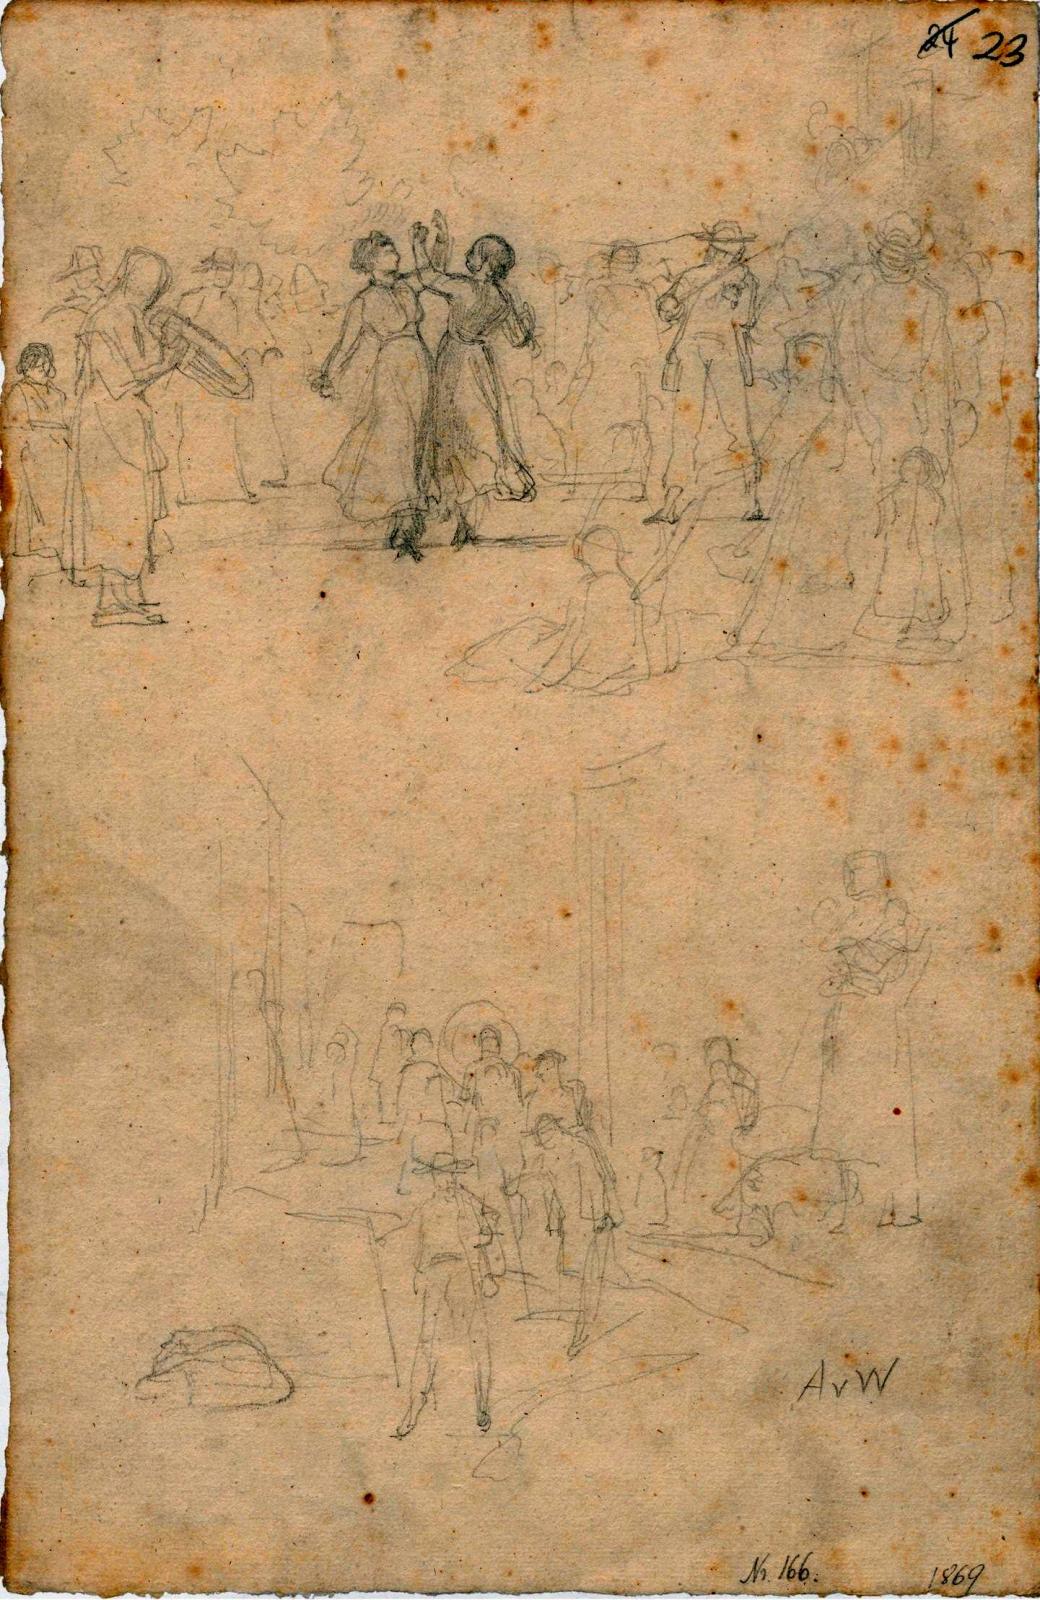 24 23
AvW
Nr. 166. 1869